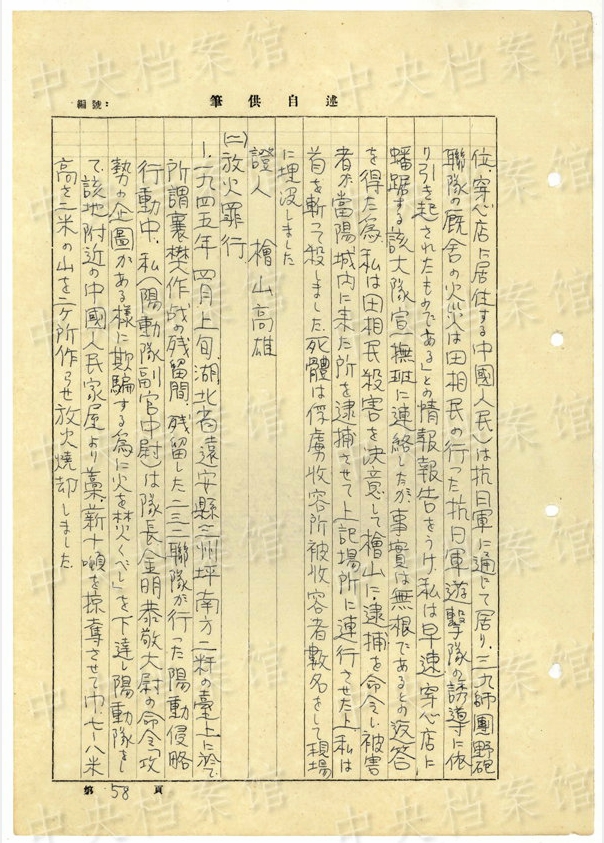 編號：
筆供自述
位、穿心店に居住する中國人民）は抗日軍に通じて居り、三九師團野砲
聯隊の厩舎の火災は田相民の行った抗日軍遊擊隊の誘導に依
り引き起されたものである」との情報報告をうけ、私は早速穿心店に
蟠踞する該大隊宣撫班に連絡したが、事實は無根であるとの返答
を得た為、私は田相民殺害を決意して檜山に、逮捕を命令し被害
者が當陽城内に来た所を逮捕させて上記場所に連行させた上、私は
首を斬って殺しました。死體は俘虜收容所被收容者數名をして現場
に埋没しました
證人　檜山高雄
㈡放火罪行
1.一九四五年四月上旬、湖北省遠安縣三州坪南方一粁の臺上に於て
所謂襄樊作戰の残留間、残留した二三二聯隊が行った陽動侵略
行動中、私（陽動隊副官中尉）は隊長金明恭敬大尉の命令「攻
勢の企圖がある様に欺騙する為に火を焚くべし」を下達し陽動隊をし
て、該地附近の中國人民家屋より藁、薪十噸を掠奪させて巾七～八米
高さ二米の山を二ヶ所作らせ放火燒却しました
第 58 頁
中央档案馆
中央档案馆
中央档案馆
中央档案馆